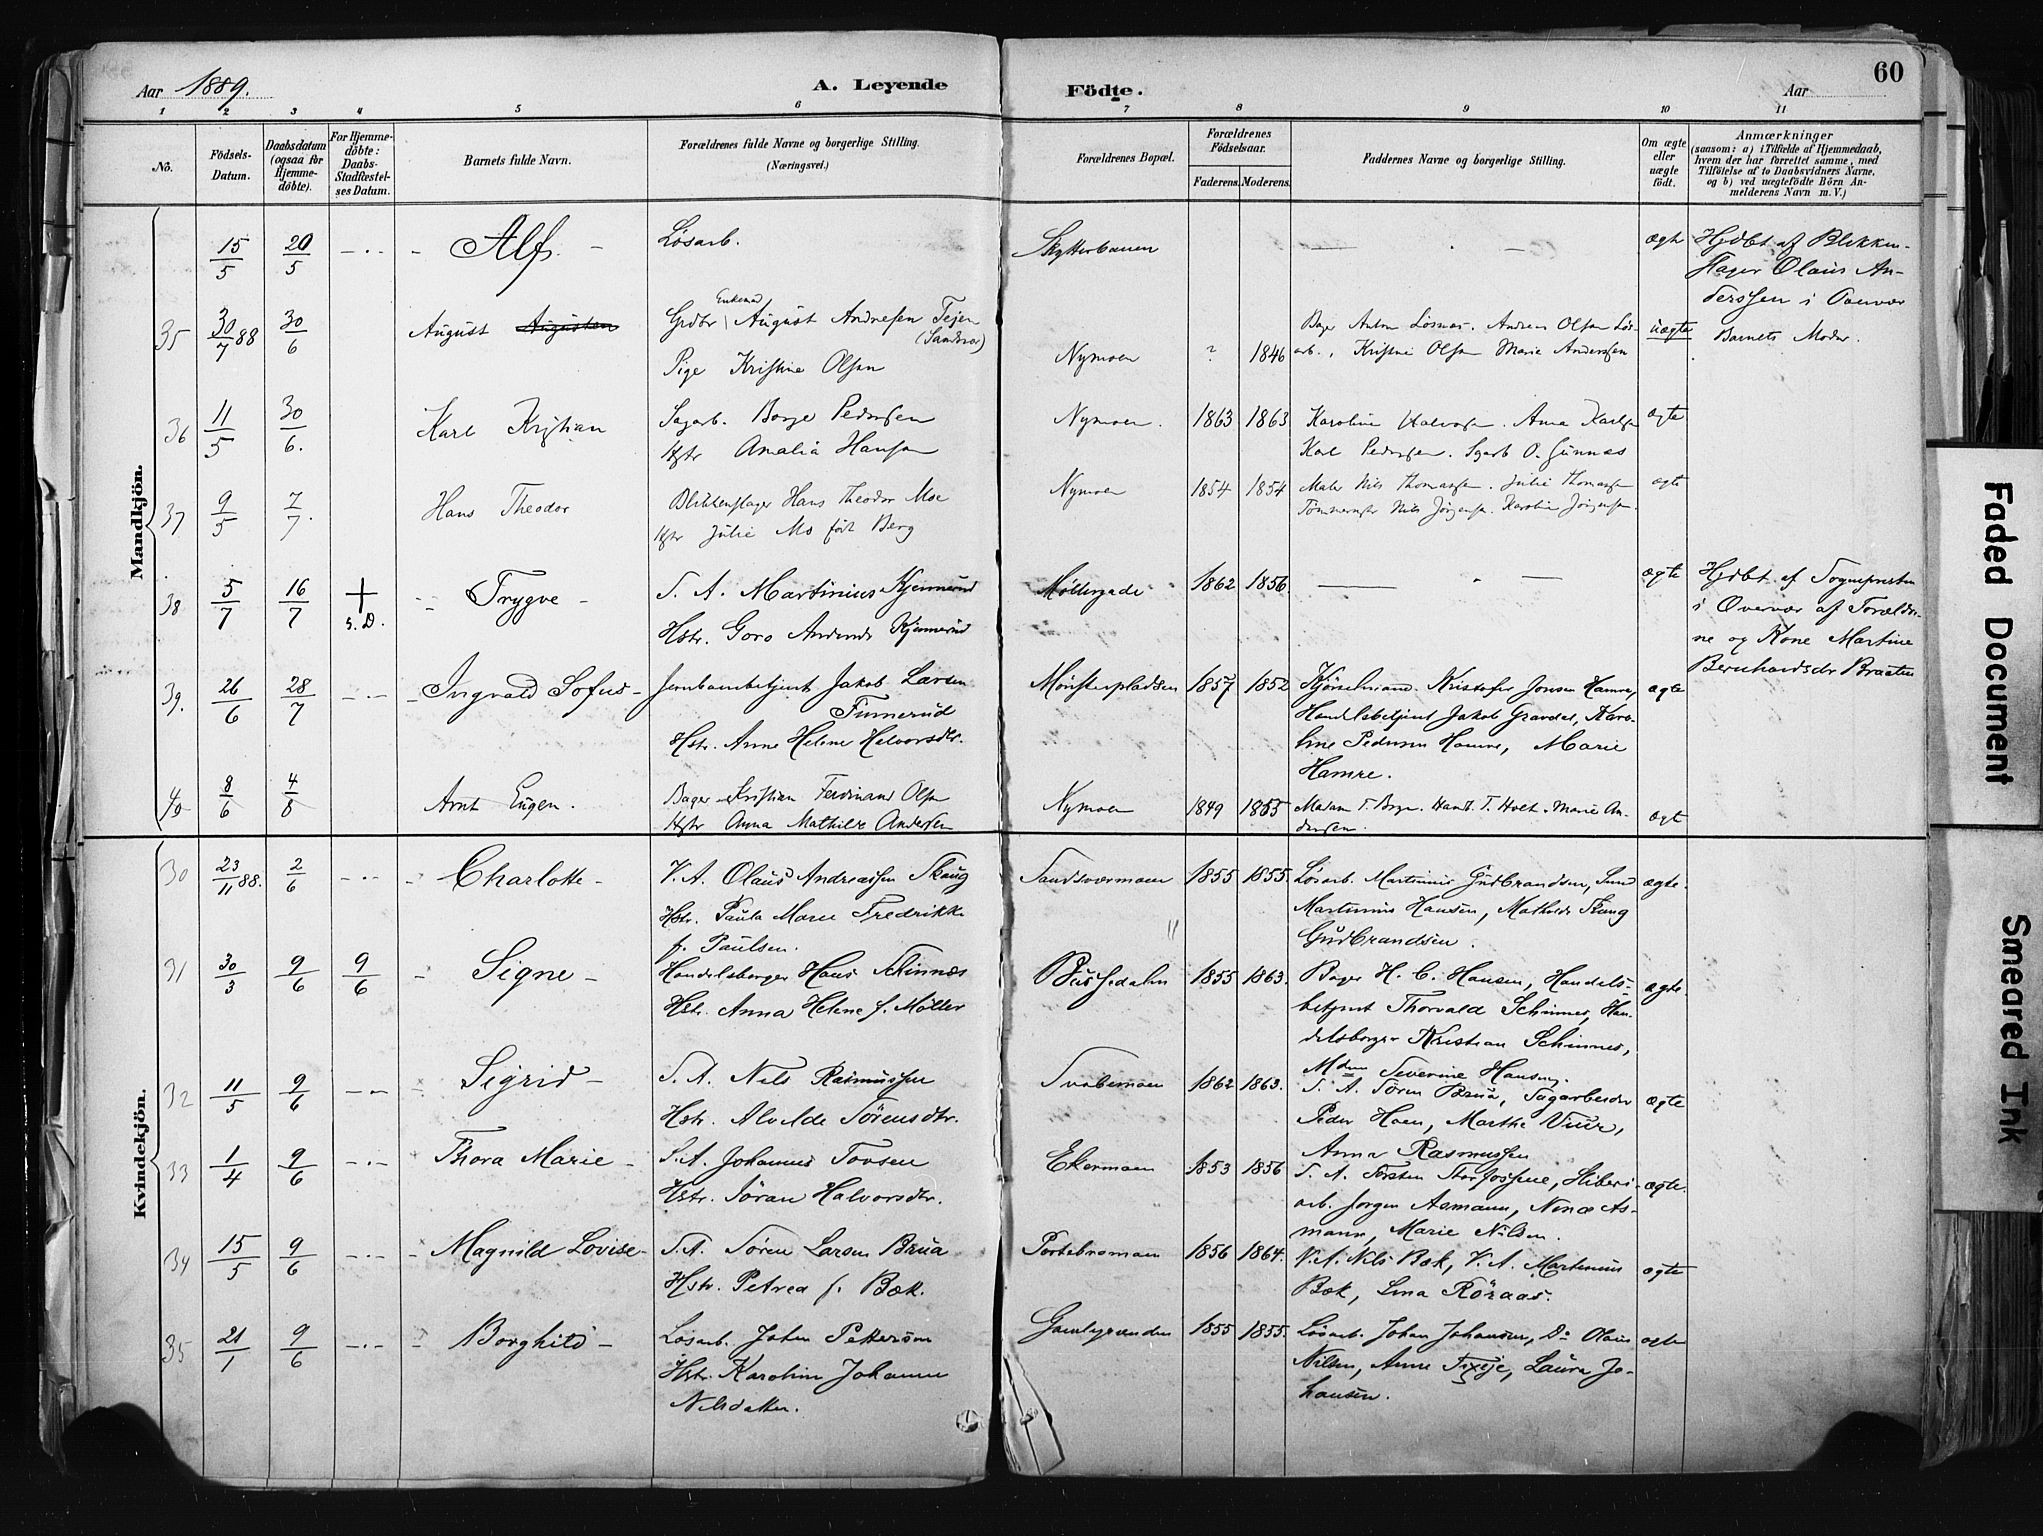 Aar 1889.
A. Levende
Födte.
Aar
60
1 2 3 4 5 6 7 8 9 10 11
Nô.
Födsels-
Datum.
Daabsdatum
(ogsaa for
Hjemme-
döbte).
For Hjemme-
döbte:
Daabs-
Stadfæstel-
ses Datum.
Barnets fulde Navn.
Forældrenes fulde Navne og borgerlige Stilling.
(Næringsvei.)
Forældrenes Bopæl.
Forældrenes
Födselsaar.
Faderens. Moderens.
Faddernes Navne og borgerlige Stilling.
Om ægte
eller
uægte
födt.
Anmærkninger
(saasom: a) i Tilfælde af Hjemmedaab,
hvem der har forrettet samme, med
Tilföielse af to Daabsvidners Navne,
og b) ved uægtefödte Börn An-
melderens Navn m. V.)
Mandkjön.
15/5 20/5 Alf. Løsarb. Skytterbanen ægte Hjdbt af Blikken-
slager Olaus An-
derssen i Overvær
35 30/7 88 30/6 August Augustsen Grdbr Enkemd August Andresen Tejen
(Sandsvær)
Pige Kristine Olsen
Nymoen ? 1846
Bager Anton Losnas. Andreas Olsen Løs-
arb., Kristine Olsen Marie Anderssen
uægte Barnets Moder.
36 11/5 30/6. Karl Kristian Sagarb. Borge Pedersen
Hstr Amalia Hansen
Nymoen. 1863 1863
Karoline Halvorsen. Anna Karlsen
Karl Pedersen. Sgarb O. Gunnæs
ægte
37 9/5 7/7. Hans Theodor Blikkenslager Hans Theodor Moe
Hstr Julie Mo født Berg
Nymoen 1854 1854
Maler Nils Thomassen. Julie Thomassen
Tömmermstr Nils Jörgensen. Karoline Jörgensen.
ægte
38 5/7 16/7 s. D. Trygve S. A. Martinius Kjennerud
Hstr. Goro Andersdr Kjennerud
Møllergade 1862 1856.
ægte Hjdbt af Sognepresten
i Overvær af Forældre-
ne og Kone Martine
Bernhardsdr Braaten
39. 26/6 28/7 Ingvald Sofus Jernbanebetjent Jakob Larsen
Fumerud
Hstr. Anne Helene Halvorsdtr.
Mönsterpladsen 1857 1852
Kjörselmand Kristofer Jonsen Hamre,
Handelsbetjent Jakob Gravdal, Karo-
line Pedersen Hamre, Marie
Hamre.
ægte
40 8/6 4/8 Arnt Eugen. Bager Kristian Ferdinand Olsen
Hstr Anna Mathilde Andersen
Nymoen 1849 1855
Madam T. Bryn. Handl. T. Holt. Marie An-
dersen.
ægte
Kvindekjön.
30 23/11 88. 2/6 Charlotte V. A. Olaus Andreassen Skaug
Hstr. Paula Marie Fredrikke
f. Paulsen.
Sandsværmoen 1855 1855.
Løsarb. Martinius Gudbrandsen, Smd
Martinius Hansen, Mathilde Skaug
Gudbrandsen.
ægte.
31 30/3 9/6 9/6 Signe Handelsborger Hans Schinnes
Hstr. Anna Helene f. Möller
Pussedalen 1855 1863.
Bager H. C. Hansen, Handels-
betjent Thorvald Schinnes, Han-
delsborger Kristian Schinnes,
Mdm Severine Hansen.
ægte.
32 11/5 9/6 Sigrid S. A. Nils Rasmussen
Hstr. Alvilde Sörensdtr.
Svabemoen 1862 1863.
S. A. Sören Brua, Sagarbeider
Peder Hoen, Marthe Viur,
Anna Rasmussen
ægte
33 1/4 9/6 Thora Marie S. A. Johannes Tovsen
Hstr. Jöran Halvorsdtr.
Ekermoen 1853 1856
S. A. Torsten Storfossene, Sliberi-
arb. Jorgen Asmann, Nina As-
mann, Marie Nilsen.
ægte.
34 15/5 9/6 Magnild Lovise S. A. Sören Larsen Brua
Hstr. Petrea f. Bæk.
Portebromoen 1856 1864.
V. A. Nils Bæk, V. A. Martinius
Bæk, Lina Röraas.
ægte
35 21/1 9/6 Borghild Løsarb. Johan Pettersen
Hstr. Karoline Johanne
Nilsdatter.
Gamlegrænden 1855 1855.
Løsarb. Johan Johansen, Do Olaus
Nilsen, Anne Texeje, Laura Jo-
hansen.
ægte
Faded Document
Smeared Ink